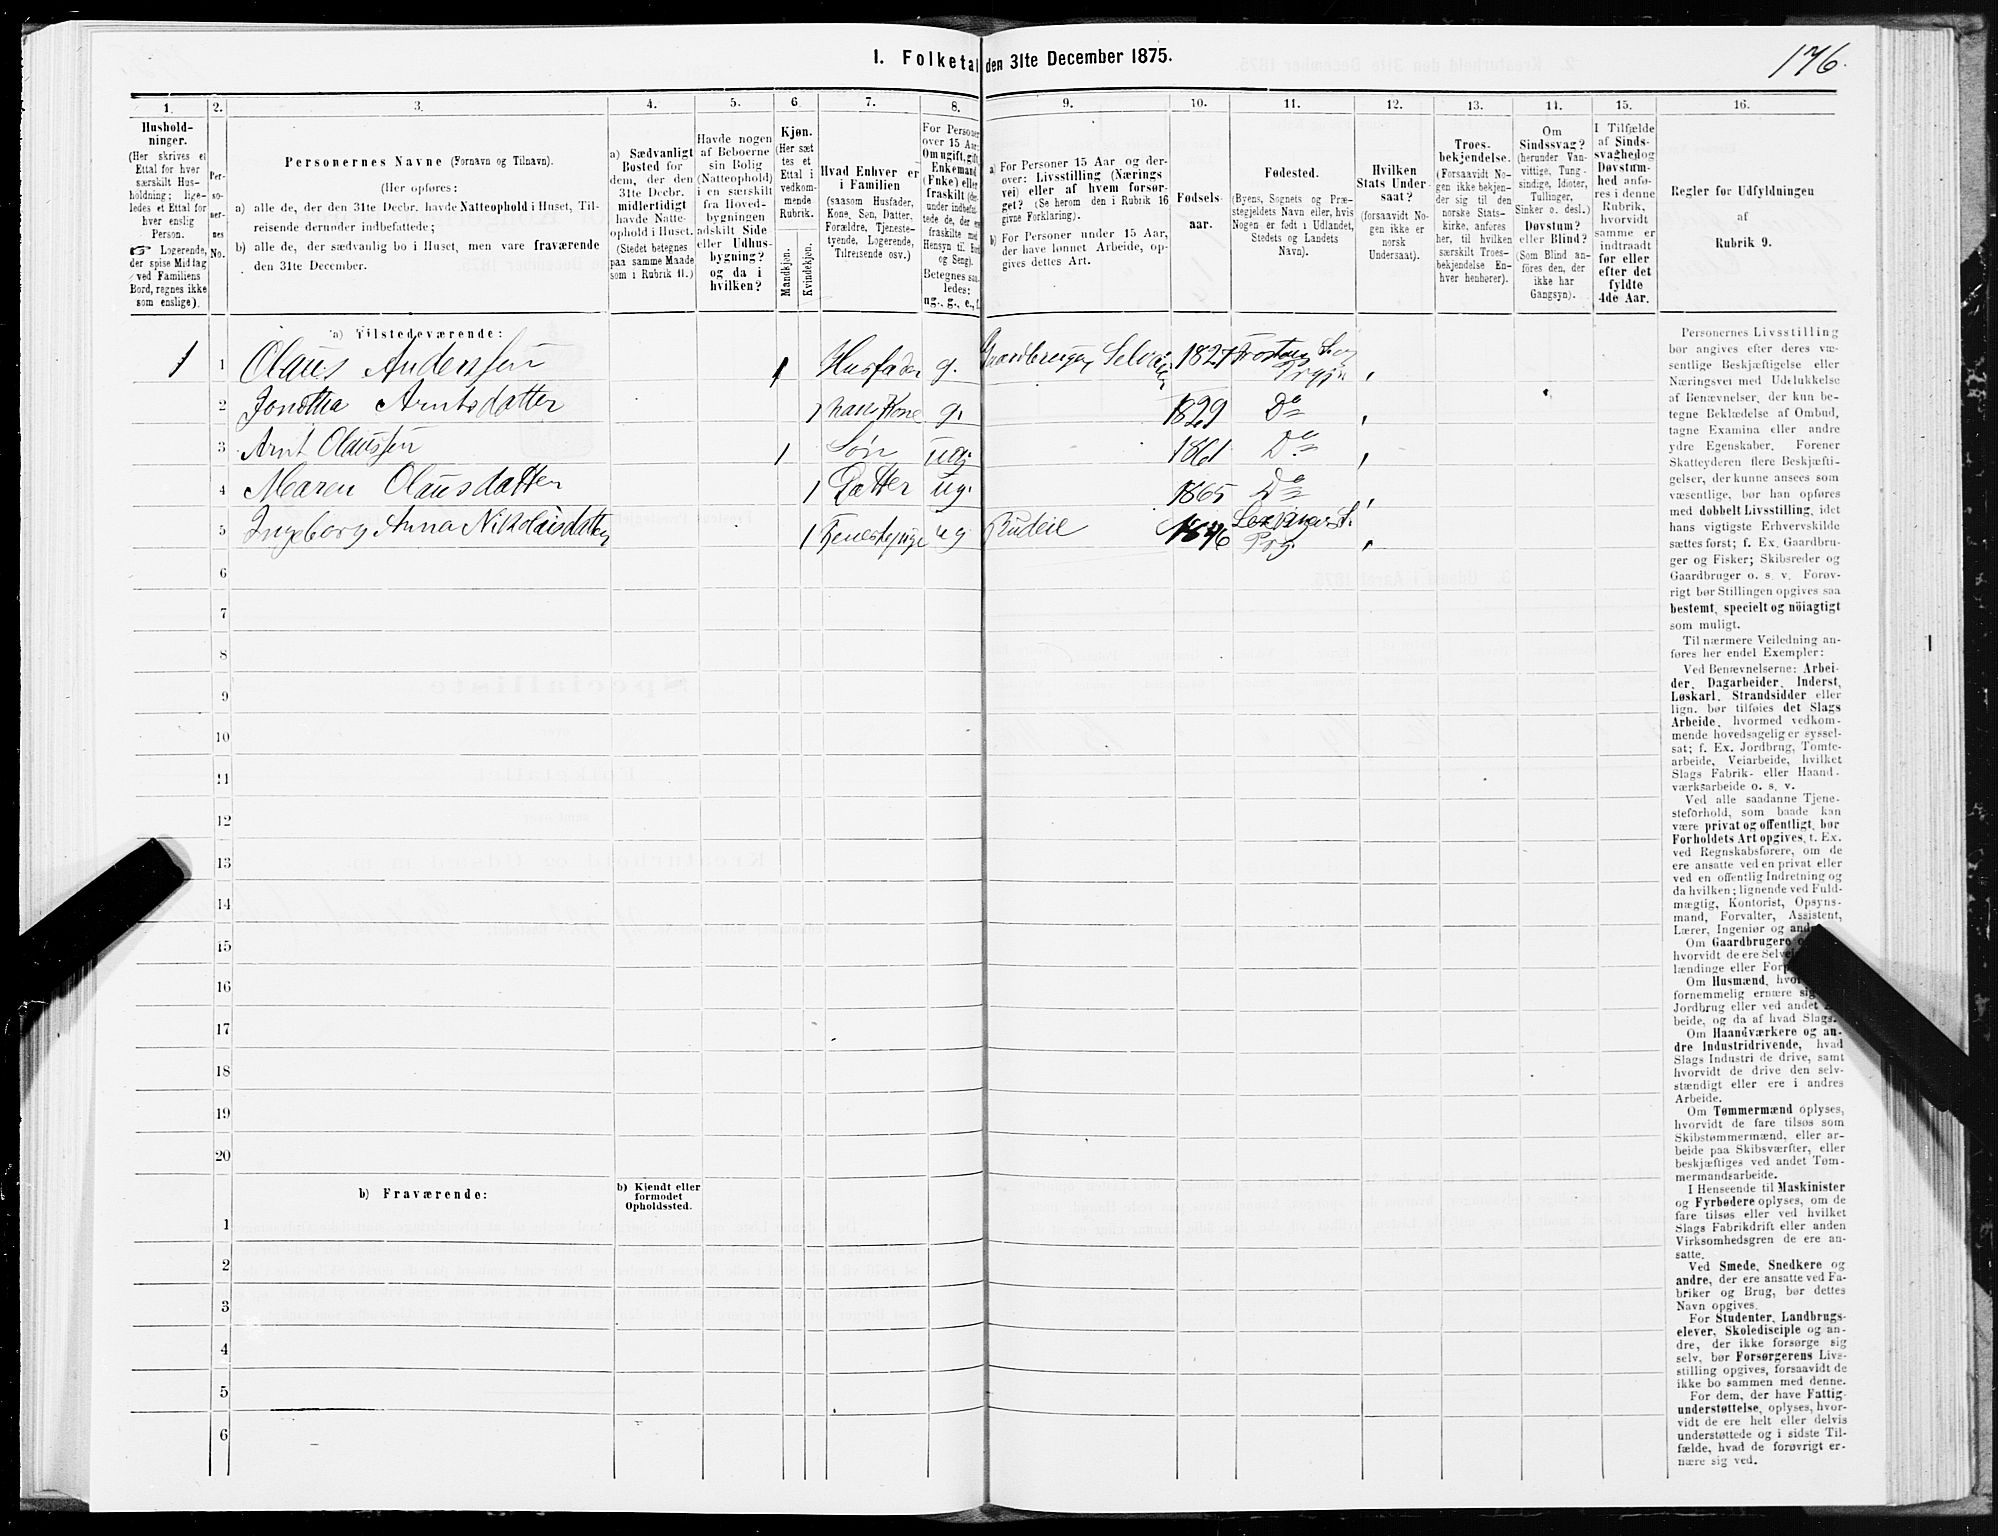 176.
I. Folketal den 31te December 1875.
1.
2.
3.
4.
5.
6.
7.
8.
9.
10.
11.
12.
13.
14.
15.
16.
Hushold-
ninger.
(Her skrives et
Ettal for hver
særskilt Hus-
holdning; lige-
ledes et Ettal for
hver enslig
Person.
☞ Logerende,
der spise Middag
ved Familiens
Bord, regnes ikke
som enslige).
Per-
so-
ner-
nes
No.
Personernes Navne (Fornavn og Tilnavn).
(Her opføres:
a) alle de, der den 31te Decbr. havde Natteophold i Huset, Til-
reisende derunder indbefattede;
b) alle de, der sædvanlig bo i Huset, men vare fraværende
den 31te December.
a) Sædvanligt
Bosted for
dem, der den
31te Decbr.
midlertidigt
havde Natte-
ophold i Huset.
(Stedet betegnes
paa samme Maade
som i Rubrik 11.)
Havde nogen
af Beboerne
sin Bolig
(Natteophold)
i en særskilt
fra Hoved-
bygningen
adskilt Side
eller Udhus-
bygning?
og da i
hvilken?
Kjøn.
(Her sæt-
tes et
Ettal i
vedkom-
mende
Rubrik.
Mandkjøn.
Kvindekjøn.
Hvad Enhver er
i Familien
(saasom Husfader,
Kone, Søn, Datter,
Forældre, Tjeneste-
tyende, Logerende,
Tilreisende osv.)
For Personer
over 15 Aar:
Om ugift, gift,
Enkemand
(Enke) eller
fraskilt (der-
under indbefat-
tede de, der ere
fraskilte med
Hensyn til Bord
og Seng).
Betegnes saa-
ledes:
ug., g., e., f.
a) For Personer 15 Aar og der-
over: Livsstilling (Nærings
vei) eller af hvem forsør-
get? (Se herom den i Rubrik 16
givne Forklaring).
b) For Personer under 15 Aar,
der have lønnet Arbeide, op-
gives dettes Art.
Fødsels-
aar.
Fødested.
(Byens, Sognets og Præ-
stegjeldets Navn eller, hvis
Nogen er født i Udlandet,
Stedets og Landets
Navn).
Hvilken
Stats Under-
saat?
(forsaavidt No-
gen ikke er
norsk
Undersaat).
Troes-
bekjendelse.
(Forsaavidt No-
gen ikke bekjen-
der sig til den
norske Stats-
kirke, anføres
her, til hvilken
særskilt Troes-
bekjendelse En-
hver henhører).
Om
Sindssvag?
(herunder Van-
vittige, Tung-
sindige, Idioter,
Tullinger,
Sinker o. desl.)
Døvstum?
eller Blind?
(Som Blind an-
føres den, der
ikke har
Gangsyn).
I Tilfælde
af Sinds-
svaghed og
Døvstum-
hed anfø-
res i denne
Rubrik,
hvorvidt
samme er
indtraadt
før eller
efter det
fyldte
4de Aar.
Regler for Udfyldningen
af
Rubrik 9.
a) Tilstedeværende:
1 1 Olaus Anderssen 1 Husfader g. Gaardbruger, Selveier 1827
2 Jonetha Arntsdatter 1 hans Kone g. 1829 Do
3 Arnt Olaussen 1 Søn ug. 1861 Do
4 Maren Olausdatter 1 Datter ug. 1865 Do
5 Ingeborg Anna Nikolaisdatter 1 Tjenestepige ug Budeie 1846
Prg.
6
7
8
9
10
11
12
13
14
15
16
17
18
19
20
b) Fraværende:
b) Kjendt eller
formodet
Opholdssted.
1
2
3
4
5
6
Personernes Livsstilling
bør angives efter deres væ-
sentlige Beskjæftigelse eller
Næringsvei med Udelukkelse
af Benævnelser, der kun be-
tegne Beklædelse af Ombud,
tagne Examina eller andre
ydre Egenskaber. Forener
Skatteyderen flere Beskjæfti-
gelser, der kunne ansees som
væsentlige, bør han opføres
med dobbelt Livsstilling, idet
hans vigtigste Erhvervskilde
sættes først; f. Ex. Gaardbru-
ger og Fisker; Skibsreder og
Gaardbruger o. s. v. Forøv-
rigt bør Stillingen opgives saa
bestemt, specielt og nöiagtigt
som muligt.
Til nærmere Veiledning an-
føres her endel Exempler:
Ved Benævnelserne: Arbei-
der, Dagarbeider, Inderst,
Løskarl, Strandsidder eller
lign. bør tilføies det Slags
Arbeide, hvormed vedkom-
mende hovedsagelig er syssel-
sat; f. Ex. Jordbrug, Tomte-
arbeide, Veiarbeide, hvilket
Slags Fabrik- eller Haand-
værksarbeide o. s. v.
Ved alle saadanne Tjene-
steforhold, som baade kan
være privat og offentligt, bør
Forholdets Art opgives, t. Ex.
ved Regnskabsførere, om de
ere ansatte ved en privat eller
ved en offentlig Indretning og
da hvilken; lignende ved Fuld-
mægtig, Kontorist, Opsyns-
mand, Forvalter, Assistent,
Lærer, Ingeniør og
Om Gaardbrugere
hvorvidt de ere
lændinge eller
Om Husmænd,
fornemmelig ernære
Jordbrug eller ved andet
beide, og da af hvad Slags.
Om Haandværkere og an-
dre Industridrivende, hvad
Slags Industri de drive, samt
hvorvidt de drive den selv-
stændigt eller ere i andres
Arbeide.
Om Tømmermænd oplyses,
hvorvidt de fare tilsøs som
Skibstømmermænd, eller ar-
beide paa Skibsværfter, eller
beskjæftiges ved andet Tøm-
mermandsarbeide.
I Henseende til Maskinister
og Fyrbødere oplyses, om de
fare tilsøs eller ved hvilket
Slags Fabrikdrift eller anden
Virksomhedsgren de ere an-
satte.
Ved Smede, Snedkere og
andre, der ere ansatte ved Fa-
briker og Brug, bør dettes
Navn opgives.
For Studenter, Landbrugs-
elever, Skoledisciple og an-
dre, der ikke forsørge sig
selv, bør Forsørgerens Livs-
stilling opgives, forsaavidt de
ikke bo sammen med denne.
For dem, der have Fattig-
understøttelse, oplyses, hvor-
vidt de ere helt eller delvis
understøttede og i sidste Til-
fælde, hvad de forøvrigt er-
nære sig ved.